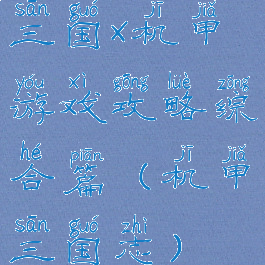 sān guó jī jiǎ
三国x机甲
yóu xì gōng lüè zōng
游戏攻略综
hé piān jī jiǎ
合篇(机甲
sān guó zhì
三国志)